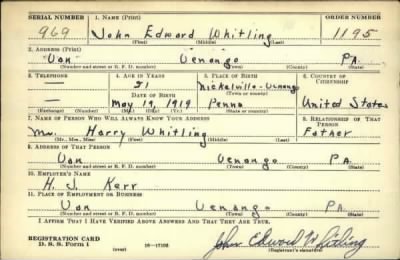 SERIAL NUMBER 1. NAME (Print) ORDER NUMBER
969 John Edward Whitling 1195
(First) (Middle) (Last)
2. ADDRESS (Print)
"Van" Venango PA.
(Number and street or R. F. D. number) (Town) (County) (State)
3. TELEPHONE 4. AGE IN YEARS 5. PLACE OF BIRTH 6. COUNTRY OF CITIZENSHIP
— 21 Nickelville-Venango
DATE OF BIRTH (Town or county)
— May 19, 1919 Penna United States
(Exchange) (Number) (Mo.) (Day) (Yr.) (State or country)
7. NAME OF PERSON WHO WILL ALWAYS KNOW YOUR ADDRESS 8. RELATIONSHIP OF THAT PERSON
Mr. Harry Whitling Father
(Mr., Mrs., Miss) (First) (Middle) (Last)
9. ADDRESS OF THAT PERSON
Van Venango PA.
(Number and street or R. F. D. number) (Town) (County) (State)
10. EMPLOYER'S NAME
H. J. Kerr
11. PLACE OF EMPLOYMENT OR BUSINESS
Van Venango PA.
(Number and street or R. F. D. number) (Town) (County) (State)
I AFFIRM THAT I HAVE VERIFIED ABOVE ANSWERS AND THAT THEY ARE TRUE.
REGISTRATION CARD
D. S. S. Form 1 (over) John Edward Whitling
(Registrant's signature)